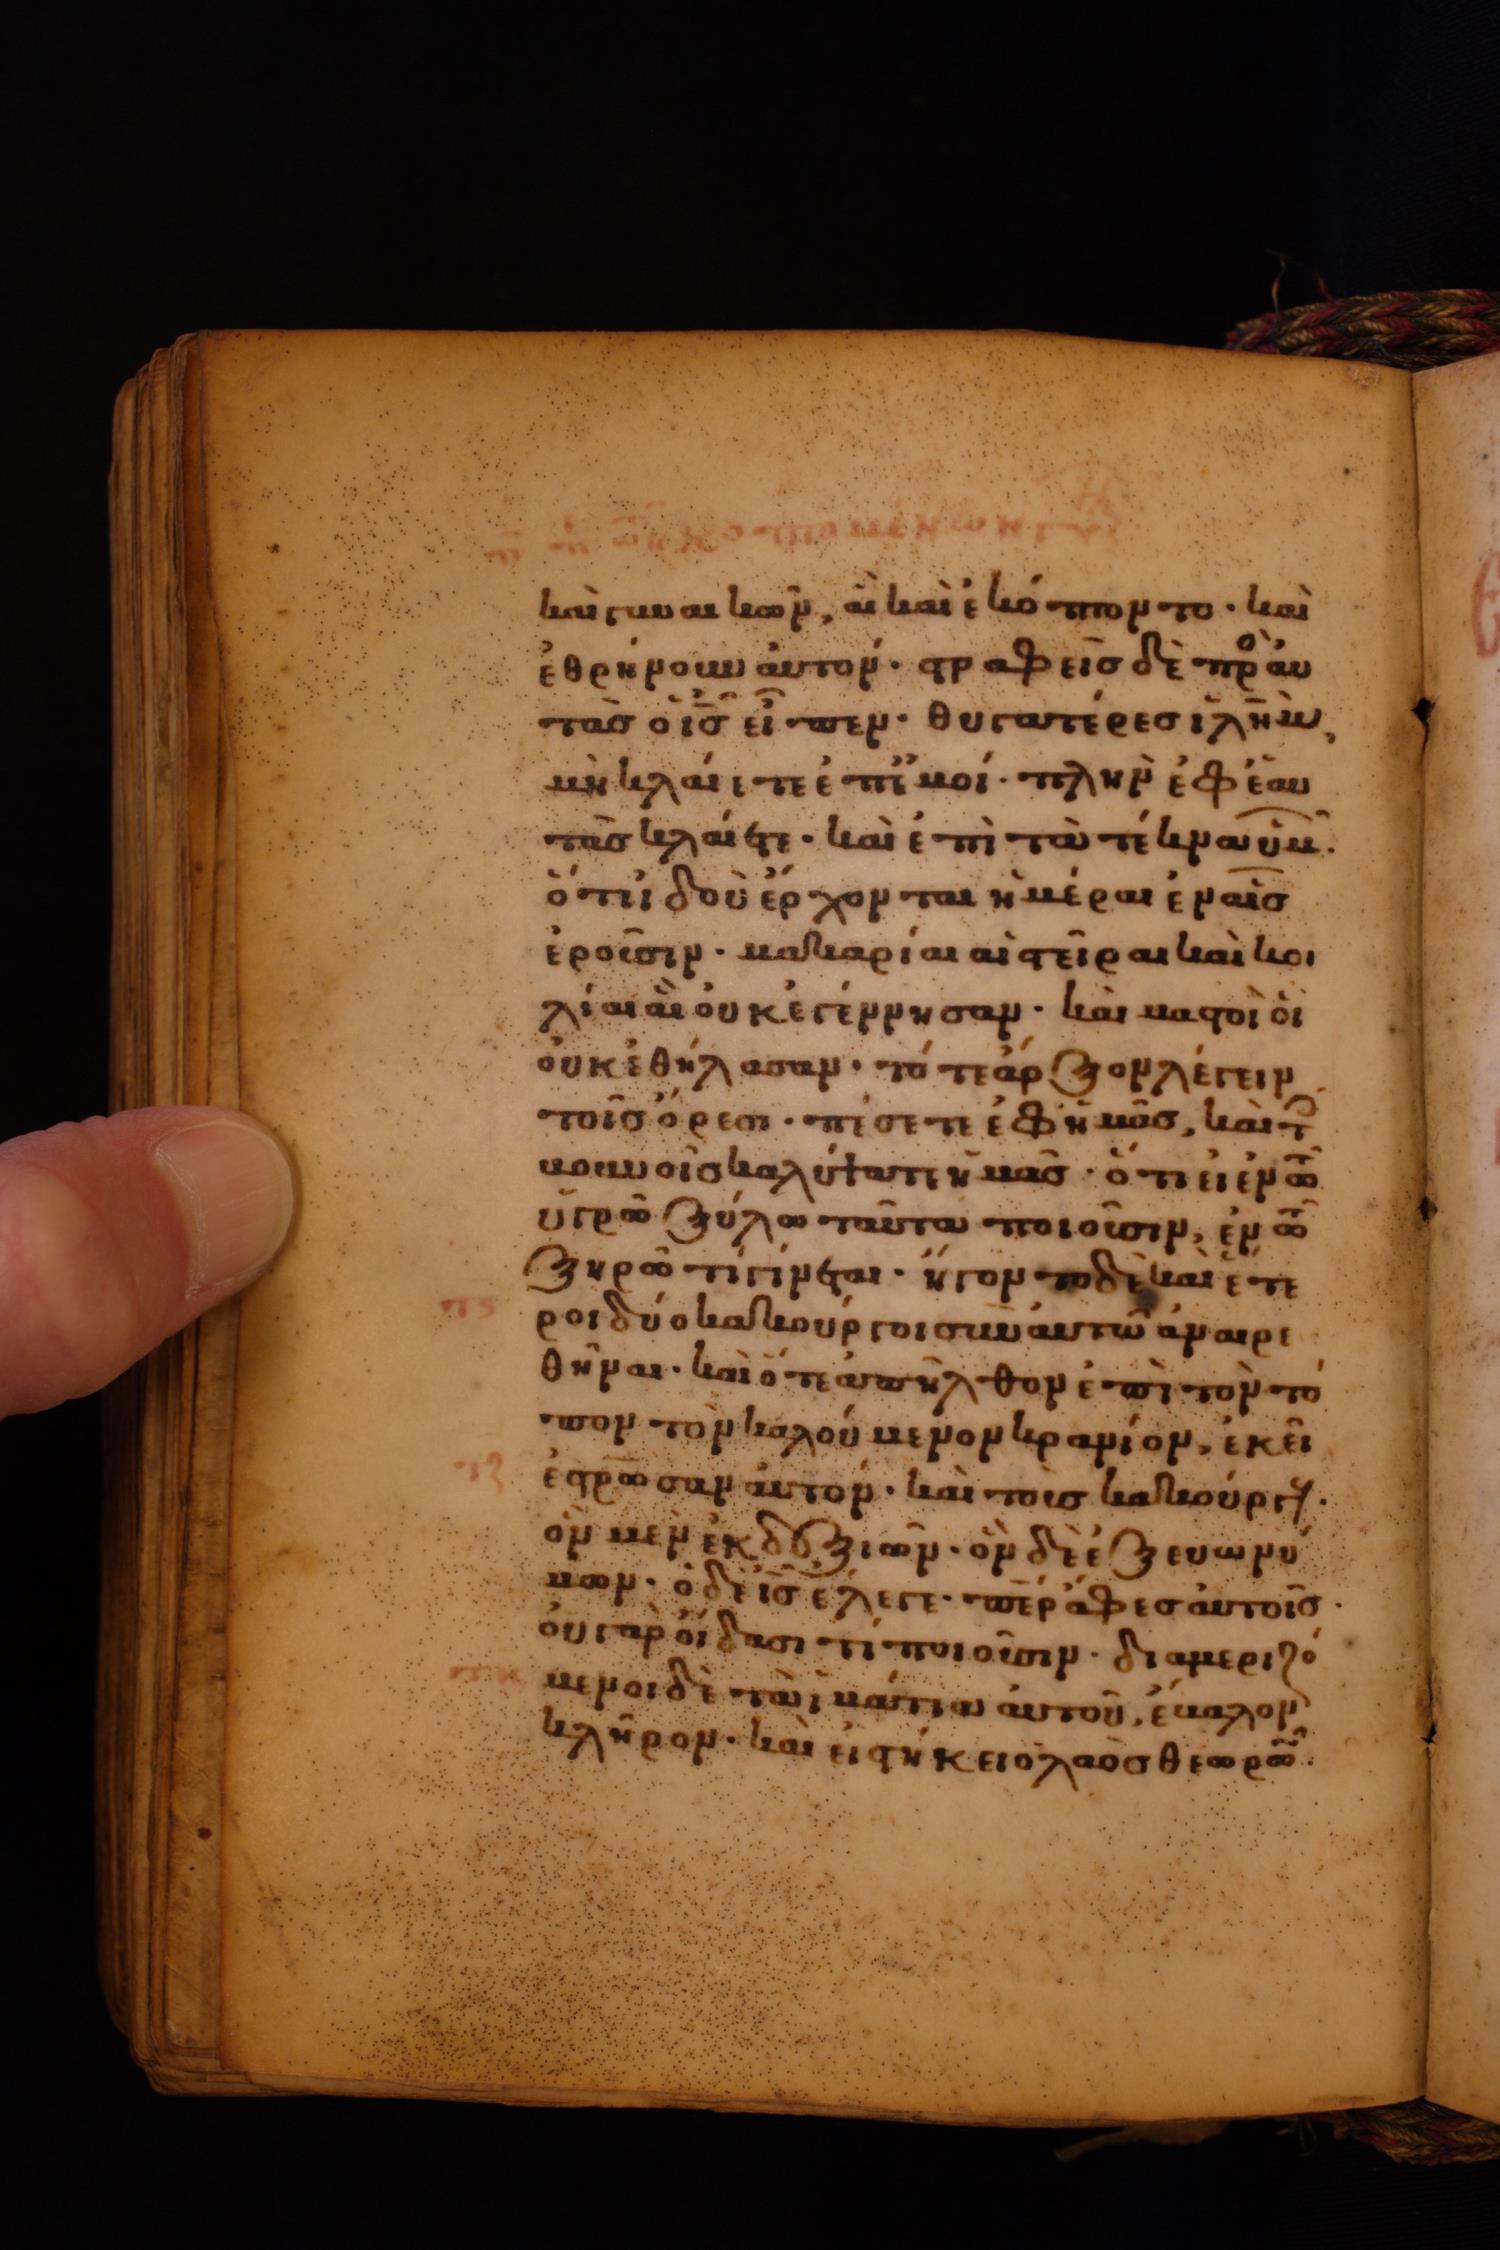 καὶ γυναικῶν, αἳ καὶ ἐκόπτοντο · καὶ
ἐθρήνουν αὐτόν · στραφεὶς δὲ πρὸς αὐ
τὰς ὁ ις εἶπεν · θυγατέρες ιλημ,
μὴ κλαίετε ἐπ' ἐμοί · πλὴν ἐφ' ἑαυ
τὰς κλαίετε · καὶ ἐπὶ τὰ τέκνα ὑμ.
ὅτι ἰδοὺ ἔρχονται ἡμέραι ἐν αἷς
ἐροῦσιν · μακάριαι αἱ στεῖραι καὶ κοι
λίαι αἳ οὐκ ἐγέννησαν · καὶ μαστοὶ οἳ
οὐκ ἐθήλασαν · τότε ἄρξον λέγειν
τοῖς ὄρεσι · πέσετε ἐφ' ἡμᾶς, καὶ τ
βουνοῖς καλύψατε ἡμᾶς · ὅτι εἰ ἐν τῶ
ὑγρῶ ξύλω ταῦτα ποιοῦσιν, ἐν τῶ
ξηρῶ τί γένηται · ἤγοντο δὲ καὶ ἕτε
ροι δύο κακούργοι σὺν αὐτῶ ἀναιρε
θῆναι · καὶ ὅτε ἀπῆλθον ἐπὶ τὸν τό
πον τὸν καλούμενον κρανίον, ἐκεῖ
ἐστρωσαν αὐτόν · καὶ τοὺς κακούργους.
ὃν μὲν ἐκ δεξιῶν · ὃν δὲ ἐξ εὐωνύ
μων · ὁ δὲ ις ἔλεγε · περ ἄφες αὐτοῖς ·
οὐ γὰρ οἴδασι τί ποιοῦσιν · διαμεριζό
μενοι δὲ τὰ ἱμάτια αὐτοῦ, ἔβαλον
κλῆρον · καὶ εἱστήκει ὁ λαὸς θεωρῶ.